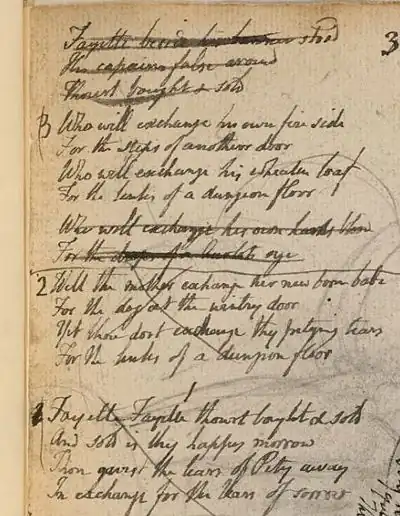 3
Fayette beside his banner stood
His captains false around
Thourt bought & sold
3 Who will exchange his own fire side
For the steps of another door
Who will exchange his wheaten loaf
For the links of a dungeon floor
Who will exchange his own hearts blood
For the drops of a harlots eye
2 Will the mother exchange her new born babe
For the dog at the wintry door
Yet thou dost exchange thy pitying tears
For the links of a dungeon floor
1 Fayette Fayette thourt bought & sold
And sold is thy happy morrow
Thou gavest the tears of Pity away
In exchange for the tears of sorrow